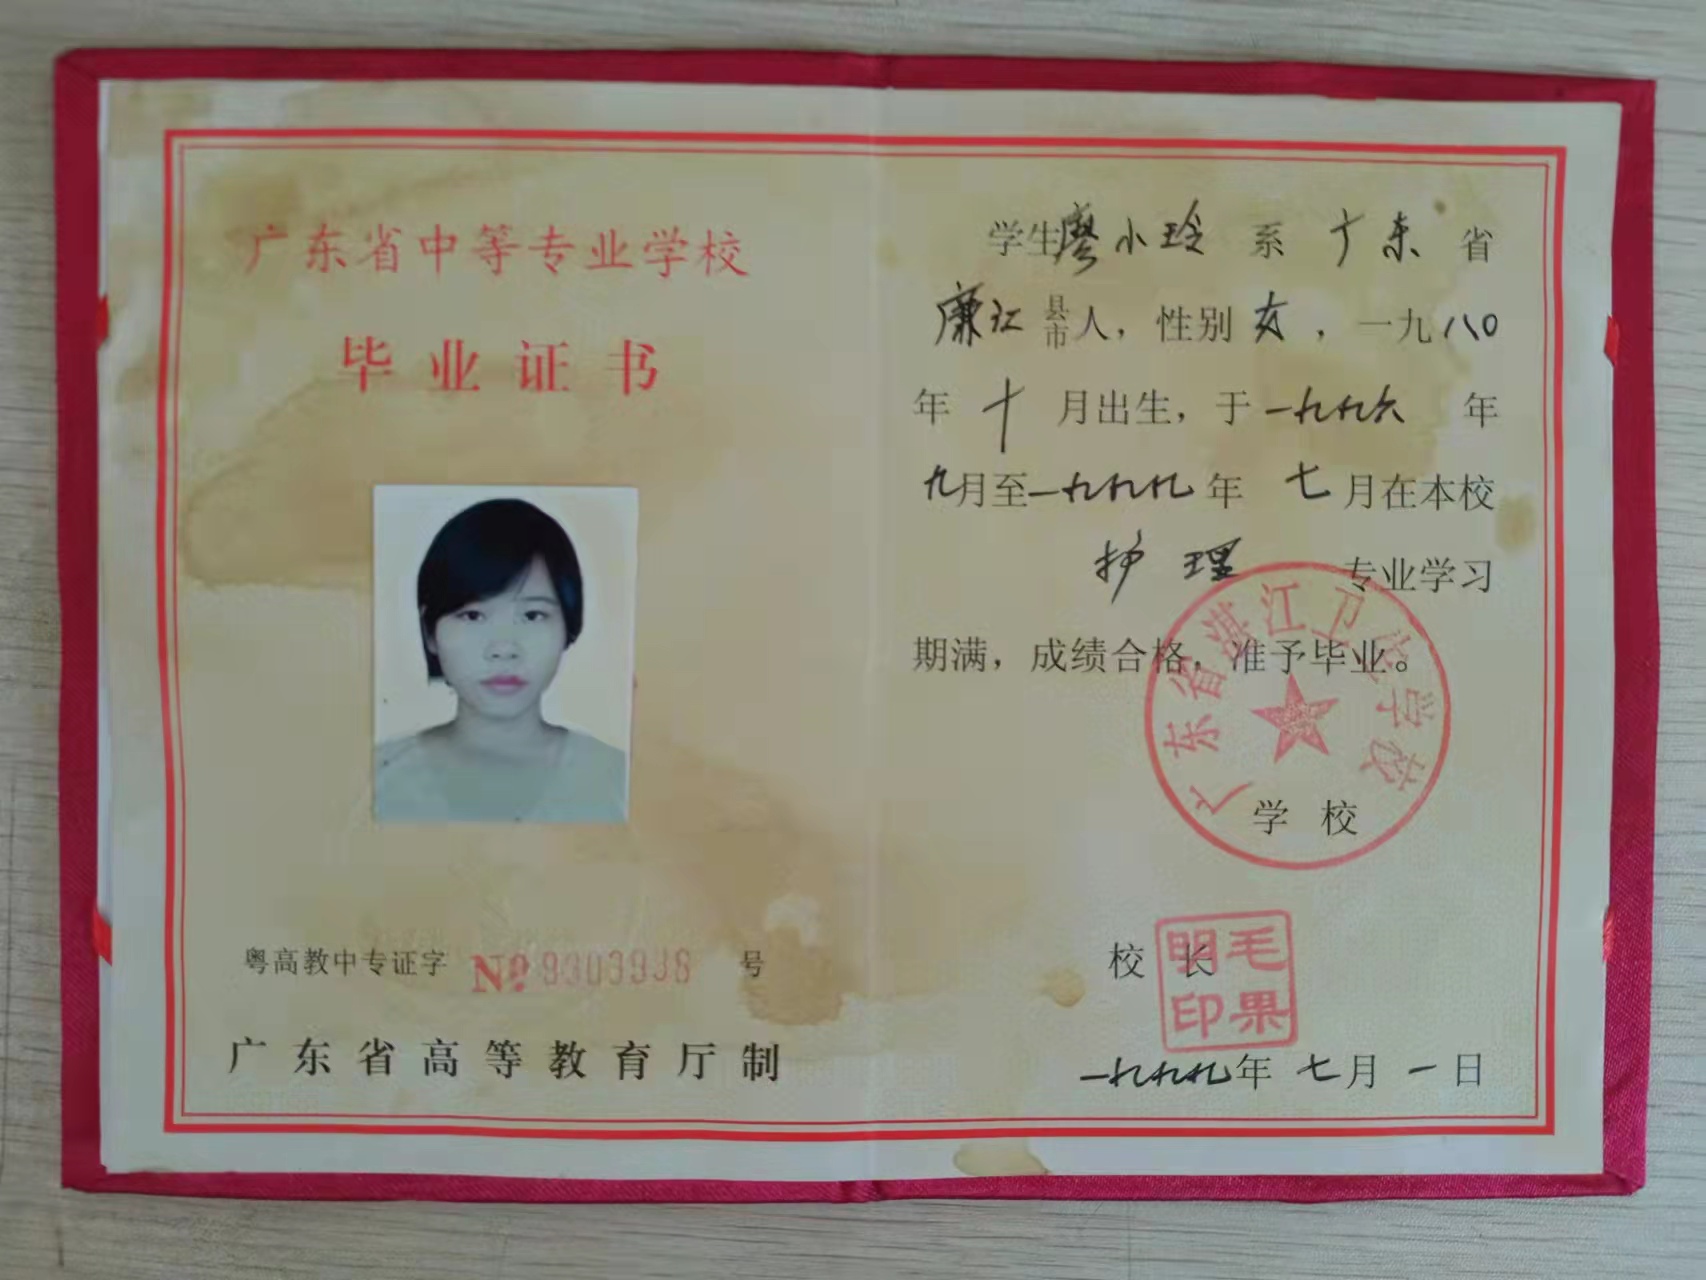 广东省中等专业学校
毕业证书
粤高教中专证字 № 9303938 号
广东省高等教育厅制
学生廖小玲 系 广东 省
廉江县市人，性别女，一九八〇
年 十 月出生，于一九九六 年
九月至一九九九年 七 月在本校
护理 专业学习
期满，成绩合格，准予毕业。
广东省湛江卫生学校
学 校
校 长
毛果明印
一九九九年 七 月 一 日